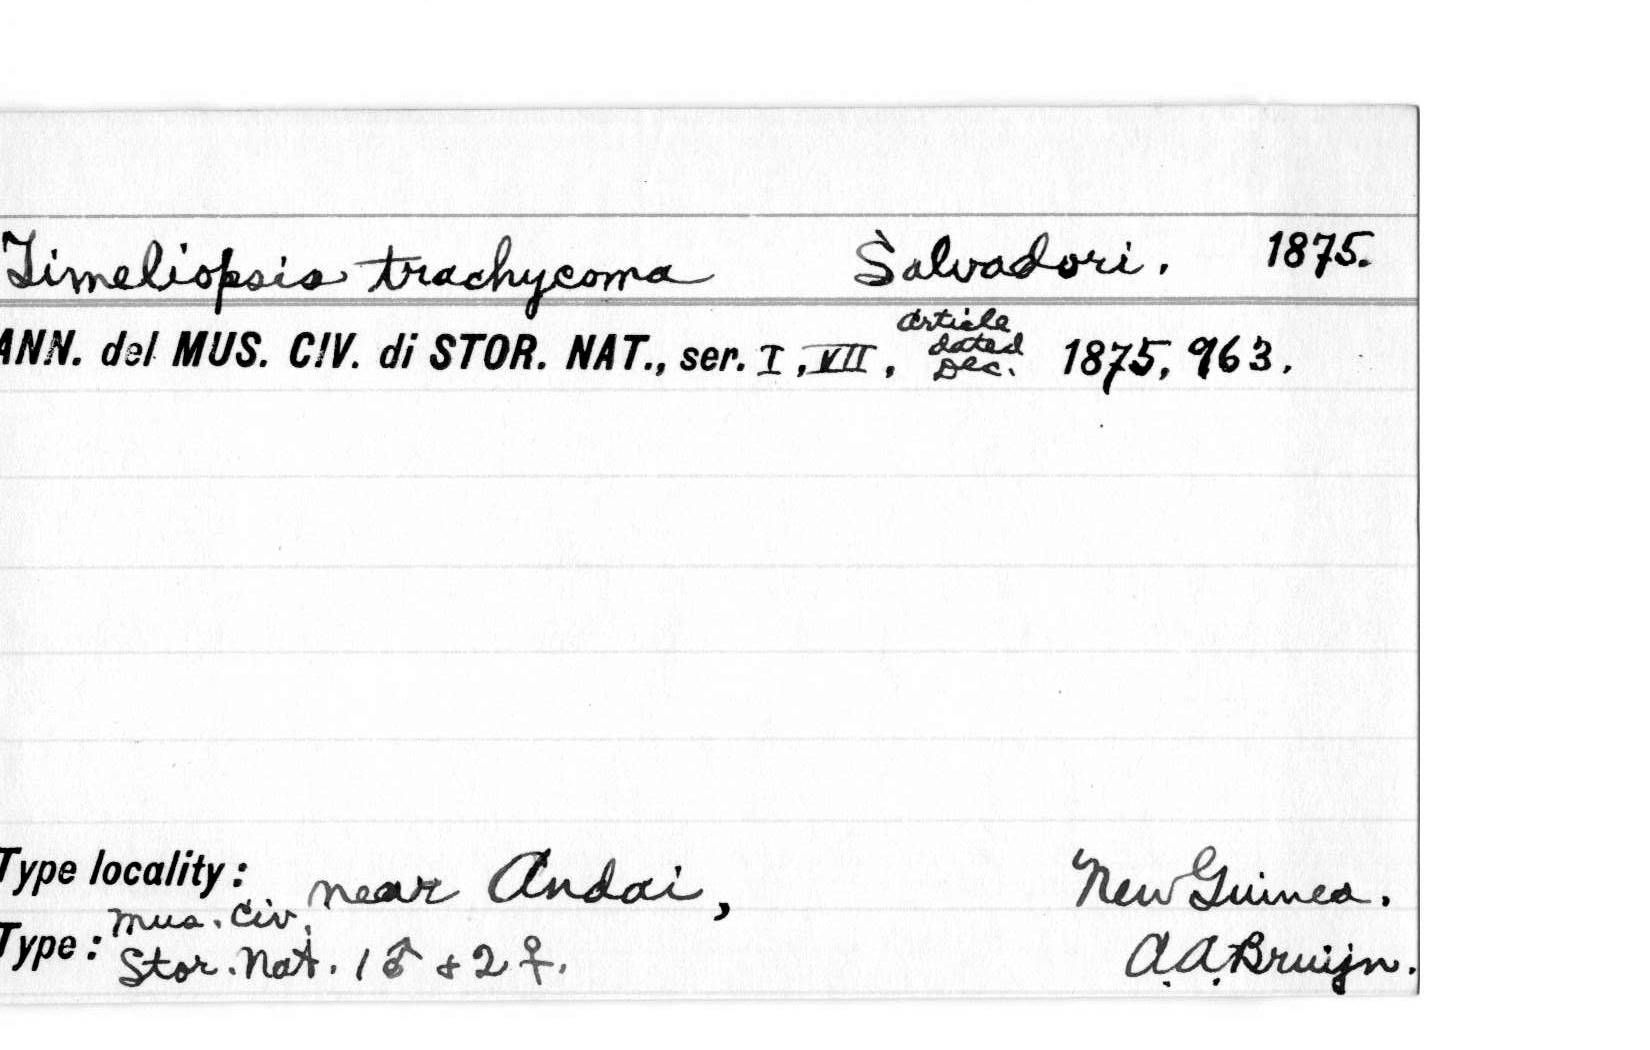 Timeliopsis trachycoma Salvadori. 1875.
ANN. del MUS. CIV. di STOR. NAT., ser. I, VII, Article dated Dec. 1875, 963.
Type locality: near Andai, New Guinea.
Type: Mus. Civ. Stor. Nat. 1 ♂ & 2 ♀. A. A. Bruijn.